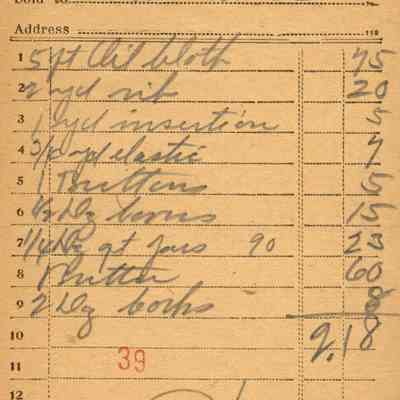 Sold to
Address 119
1 5 ft Oil Cloth 75
2 2 yd rib 20
3 1 yd insertion 5
4 3/4 yd elastic 7
5 1 Buttons 5
6 1/2 Dz 15
7 1/4 Dz qt jars 90 23
8 Butter 60
9 2 Dz corks 8
10 2.18
11 39
12